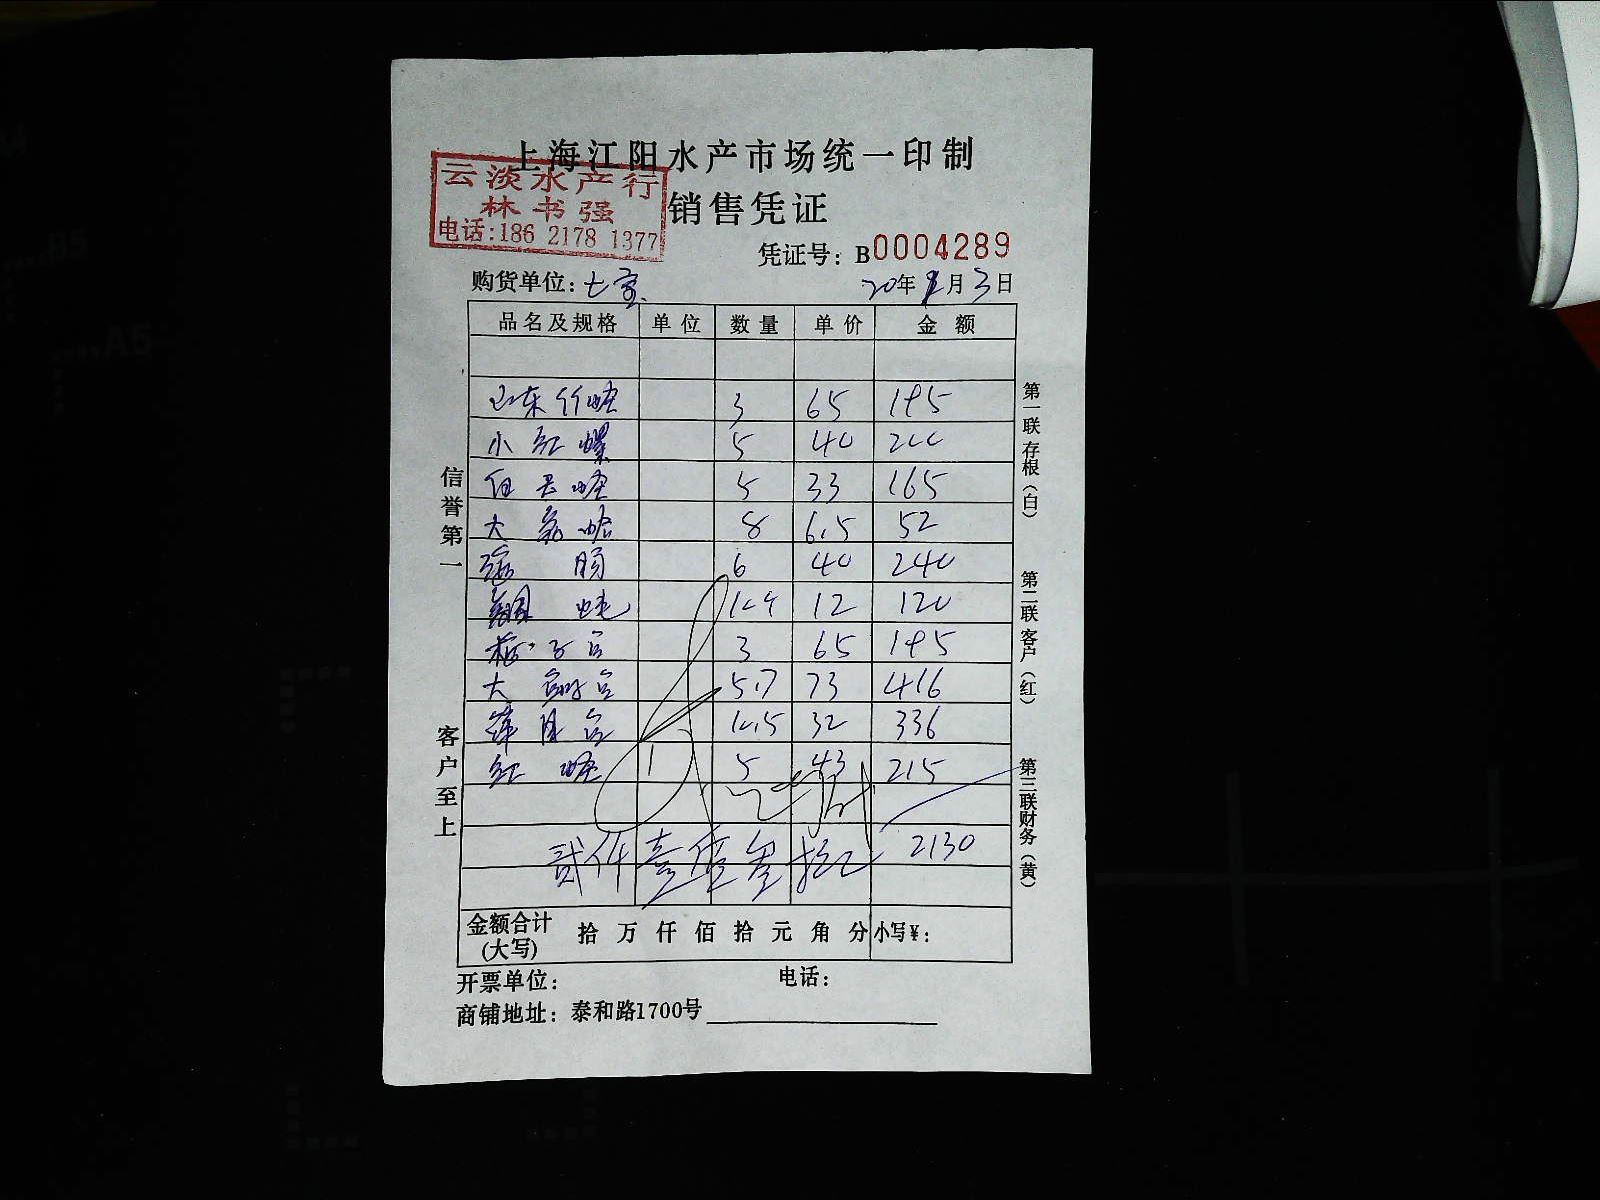 上海江阳水产市场统一印制
云淡水产行
林书强
电话:186 2178 1377
销售凭证
凭证号：B0004289
购货单位：七宝
20年 月3日
品名及规格 单位 数量 单价 金额
山东竹蛏 3 65 195
小红螺 5 40 200
蛏 5 33 165
大 蛤 8 6.5 52
肠 6 40 240
12 120
子 3 65 195
大 5.7 73 416
10.5 32 336
红 蛏 5 43 215
贰仟壹佰叁拾元 2130
金额合计(大写) 拾万仟佰拾元角分 小写¥：
开票单位： 电话：
商铺地址：泰和路1700号
信誉第一
客户至上
第一联存根（白）
第二联客户（红）
第三联财务（黄）